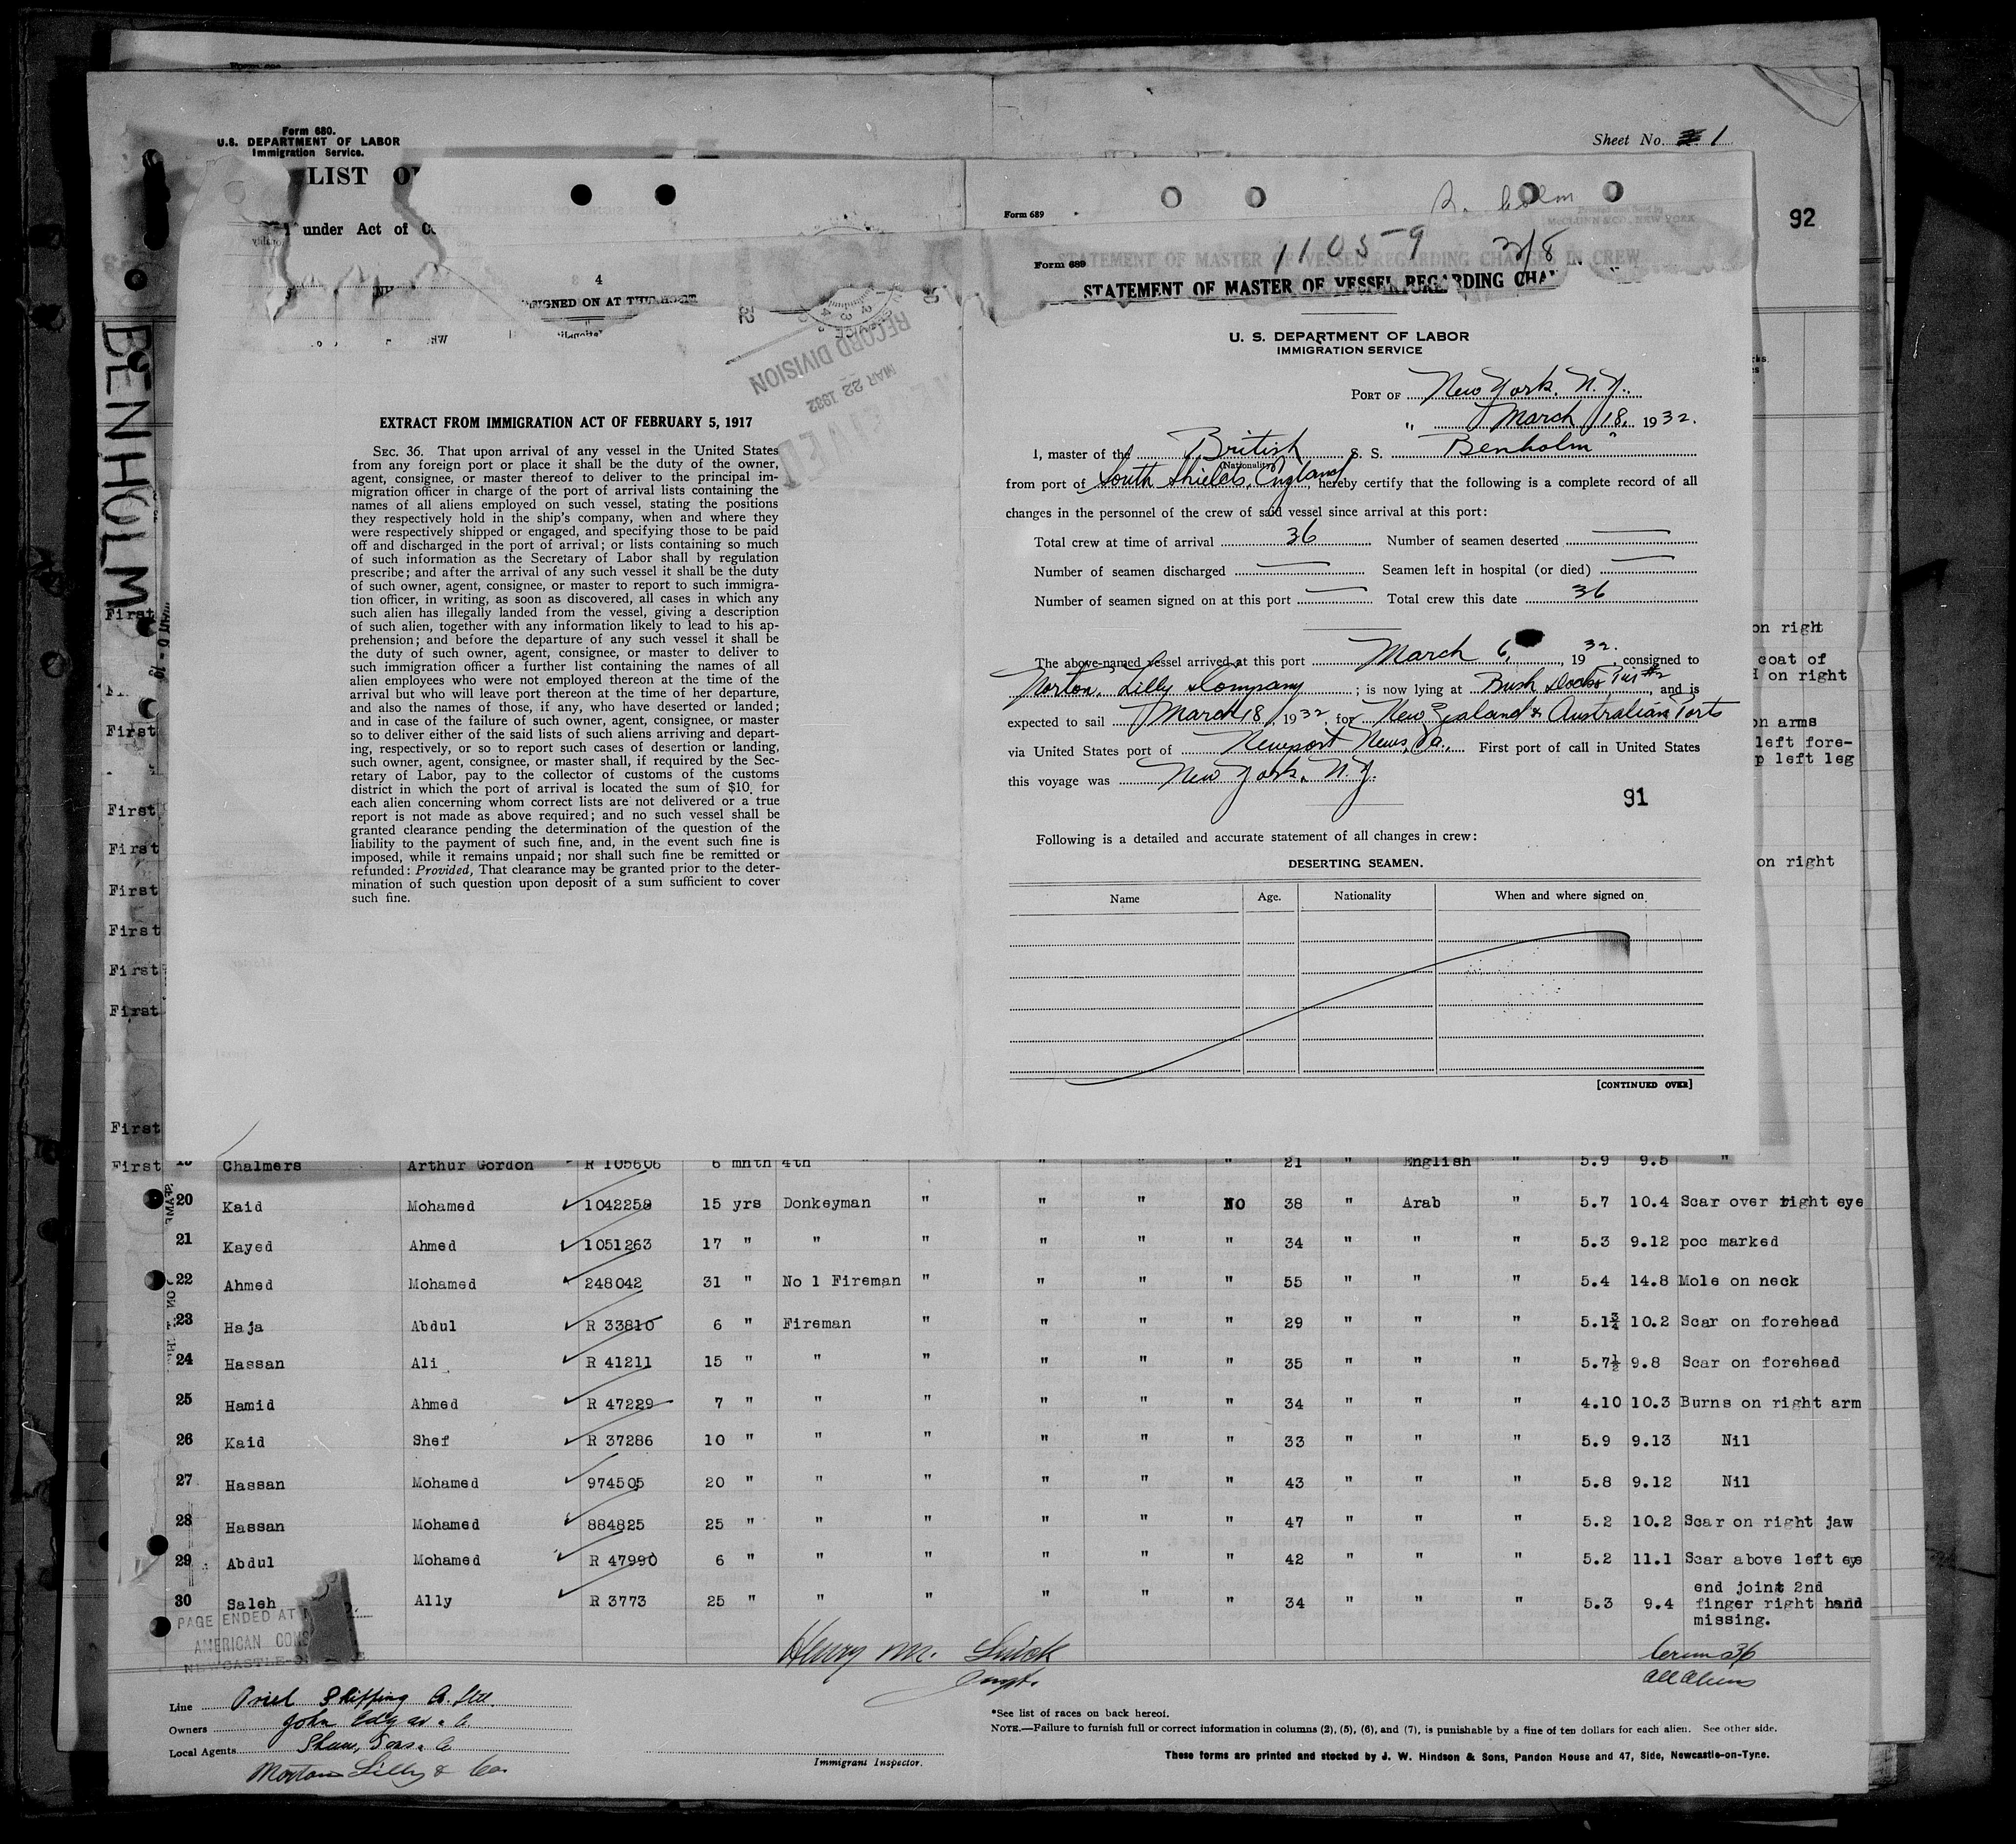 Form 680.
U.S. DEPARTMENT OF LABOR
Immigration Service.
Sheet No. 1
LIST
under Act of
92
BENHOLM
4
SIGNED ON AT
RECORD DIVISION
MAR 22 1932
EXTRACT FROM IMMIGRATION ACT OF FEBRUARY 5, 1917
SEC. 36. That upon arrival of any vessel in the United States
from any foreign port or place it shall be the duty of the owner,
agent, consignee, or master thereof to deliver to the principal im-
migration officer in charge of the port of arrival lists containing the
names of all aliens employed on such vessel, stating the positions
they respectively hold in the ship's company, when and where they
were respectively shipped or engaged, and specifying those to be paid
off and discharged in the port of arrival; or lists containing so much
of such information as the Secretary of Labor shall by regulation
prescribe; and after the arrival of any such vessel it shall be the duty
of such owner, agent, consignee, or master to report to such immigra-
tion officer, in writing, as soon as discovered, all cases in which any
such alien has illegally landed from the vessel, giving a description
of such alien, together with any information likely to lead to his ap-
prehension; and before the departure of any such vessel it shall be
the duty of such owner, agent, consignee, or master to deliver to
such immigration officer a further list containing the names of all
alien employees who were not employed thereon at the time of the
arrival but who will leave port thereon at the time of her departure,
and also the names of those, if any, who have deserted or landed;
and in case of the failure of such owner, agent, consignee, or master
so to deliver either of the said lists of such aliens arriving and depart-
ing, respectively, or so to report such cases of desertion or landing,
such owner, agent, consignee, or master shall, if required by the Sec-
retary of Labor, pay to the collector of customs of the customs
district in which the port of arrival is located the sum of $10 for
each alien concerning whom correct lists are not delivered or a true
report is not made as above required; and no such vessel shall be
granted clearance pending the determination of the question of the
liability to the payment of such fine, and, in the event such fine is
imposed, while it remains unpaid; nor shall such fine be remitted or
refunded: Provided, That clearance may be granted prior to the deter-
mination of such question upon deposit of a sum sufficient to cover
such fine.
Form 689
11059 3/8
STATEMENT OF MASTER OF VESSEL REGARDING CHANGES IN CREW
Form 689
STATEMENT OF MASTER OF VESSEL REGARDING CHA
U. S. DEPARTMENT OF LABOR
IMMIGRATION SERVICE
PORT OF New York, N. Y.
" March 18, 1932.
I, master of the British S. S. "Benholm"
(Nationality)
from port of South Shields, England, hereby certify that the following is a complete record of all
changes in the personnel of the crew of said vessel since arrival at this port:
Total crew at time of arrival 36 Number of seamen deserted —
Number of seamen discharged — Seamen left in hospital (or died) —
Number of seamen signed on at this port — Total crew this date 36
The above-named vessel arrived at this port March 6, 1932, consigned to
Norton, Lilly & Company; is now lying at Bush Docks Pier #2, and is
expected to sail March 18, 1932, for New Zealand & Australian Ports
via United States port of Newport News, Va., First port of call in United States
this voyage was New York, N. Y.
91
Following is a detailed and accurate statement of all changes in crew:
DESERTING SEAMEN.
Name Age. Nationality When and where signed on
[CONTINUED OVER]
First
First
First
First
First
First
First
First
First
First
on right
coat of
on right
on arms
left fore-
left leg
on right
19 Chalmers Arthur Gordon R 105606 6 mnth 4th " " " " 21 " English " 5.9 9.5 "
20 Kaid Mohamed 1042259 15 yrs Donkeyman " " " NO 38 " Arab " 5.7 10.4 Scar over right eye
21 Kayed Ahmed 1051263 17 " " " " " " 34 " " " 5.3 9.12 poc marked
22 Ahmed Mohamed 248042 31 " No 1 Fireman " " " " 55 " " " 5.4 14.8 Mole on neck
23 Haja Abdul R 33810 6 " Fireman " " " " 29 " " " 5.1¾ 10.2 Scar on forehead
24 Hassan Ali R 41211 15 " " " " " " 35 " " " 5.7½ 9.8 Scar on forehead
25 Hamid Ahmed R 47229 7 " " " " " " 34 " " " 4.10 10.3 Burns on right arm
26 Kaid Shef R 37286 10 " " " " " " 33 " " " 5.9 9.13 Nil
27 Hassan Mohamed 974505 20 " " " " " " 43 " " " 5.8 9.12 Nil
28 Hassan Mohamed 884825 25 " " " " " " 47 " " " 5.2 10.2 Scar on right jaw
29 Abdul Mohamed R 47990 6 " " " " " " 42 " " " 5.2 11.1 Scar above left eye
30 Saleh Ally R 3773 25 " " " " " " 34 " " " 5.3 9.4 end joint 2nd
finger right hand
missing.
PAGE ENDED AT
AMERICAN CONS
NEWCASTLE-O
Henry M.
36
all aliens
Line Oriel Shipping Co. Ltd.
Owners John Edgar & Co
Local Agents Shaw, Sons & Co
Norton Lilly & Co.
Immigrant Inspector.
*See list of races on back hereof.
NOTE.—Failure to furnish full or correct information in columns (2), (5), (6), and (7), is punishable by a fine of ten dollars for each alien. See other side.
These forms are printed and stocked by J. W. Hindson & Sons, Pandon House and 47, Side, Newcastle-on-Tyne.